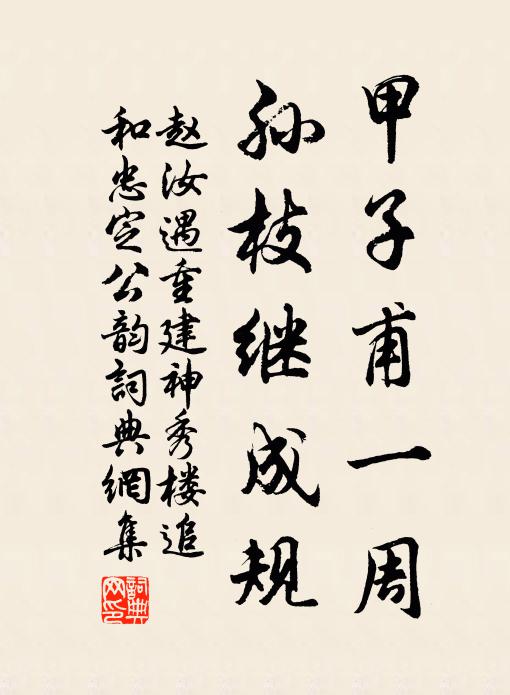 甲子甫一周
孙枝继成规
赵汝遇重建神秀楼追
和忠定公韵詞典網集
詞典網印